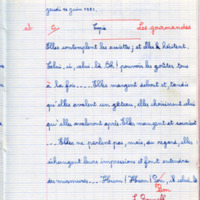 jeudi 12 juin 1981.
ab G Copie Les gourmandes
Elles contemplent les assiettes, et elles hésitent.
Celui-ci, celui-là. Oh! pouvoir les goûter tous
à la fois.... Elles mangent debout et, tandis
qu'elles avalent un gâteau, elles choisissent celui
qu'elles avaleront après. Elles mangent et sourient
.... Elles ne parlent pas, mais, du regard, elles
échangent leurs impressions et font entendre
des murmures.... Hum! Hum! Bon, celui-là
Bon